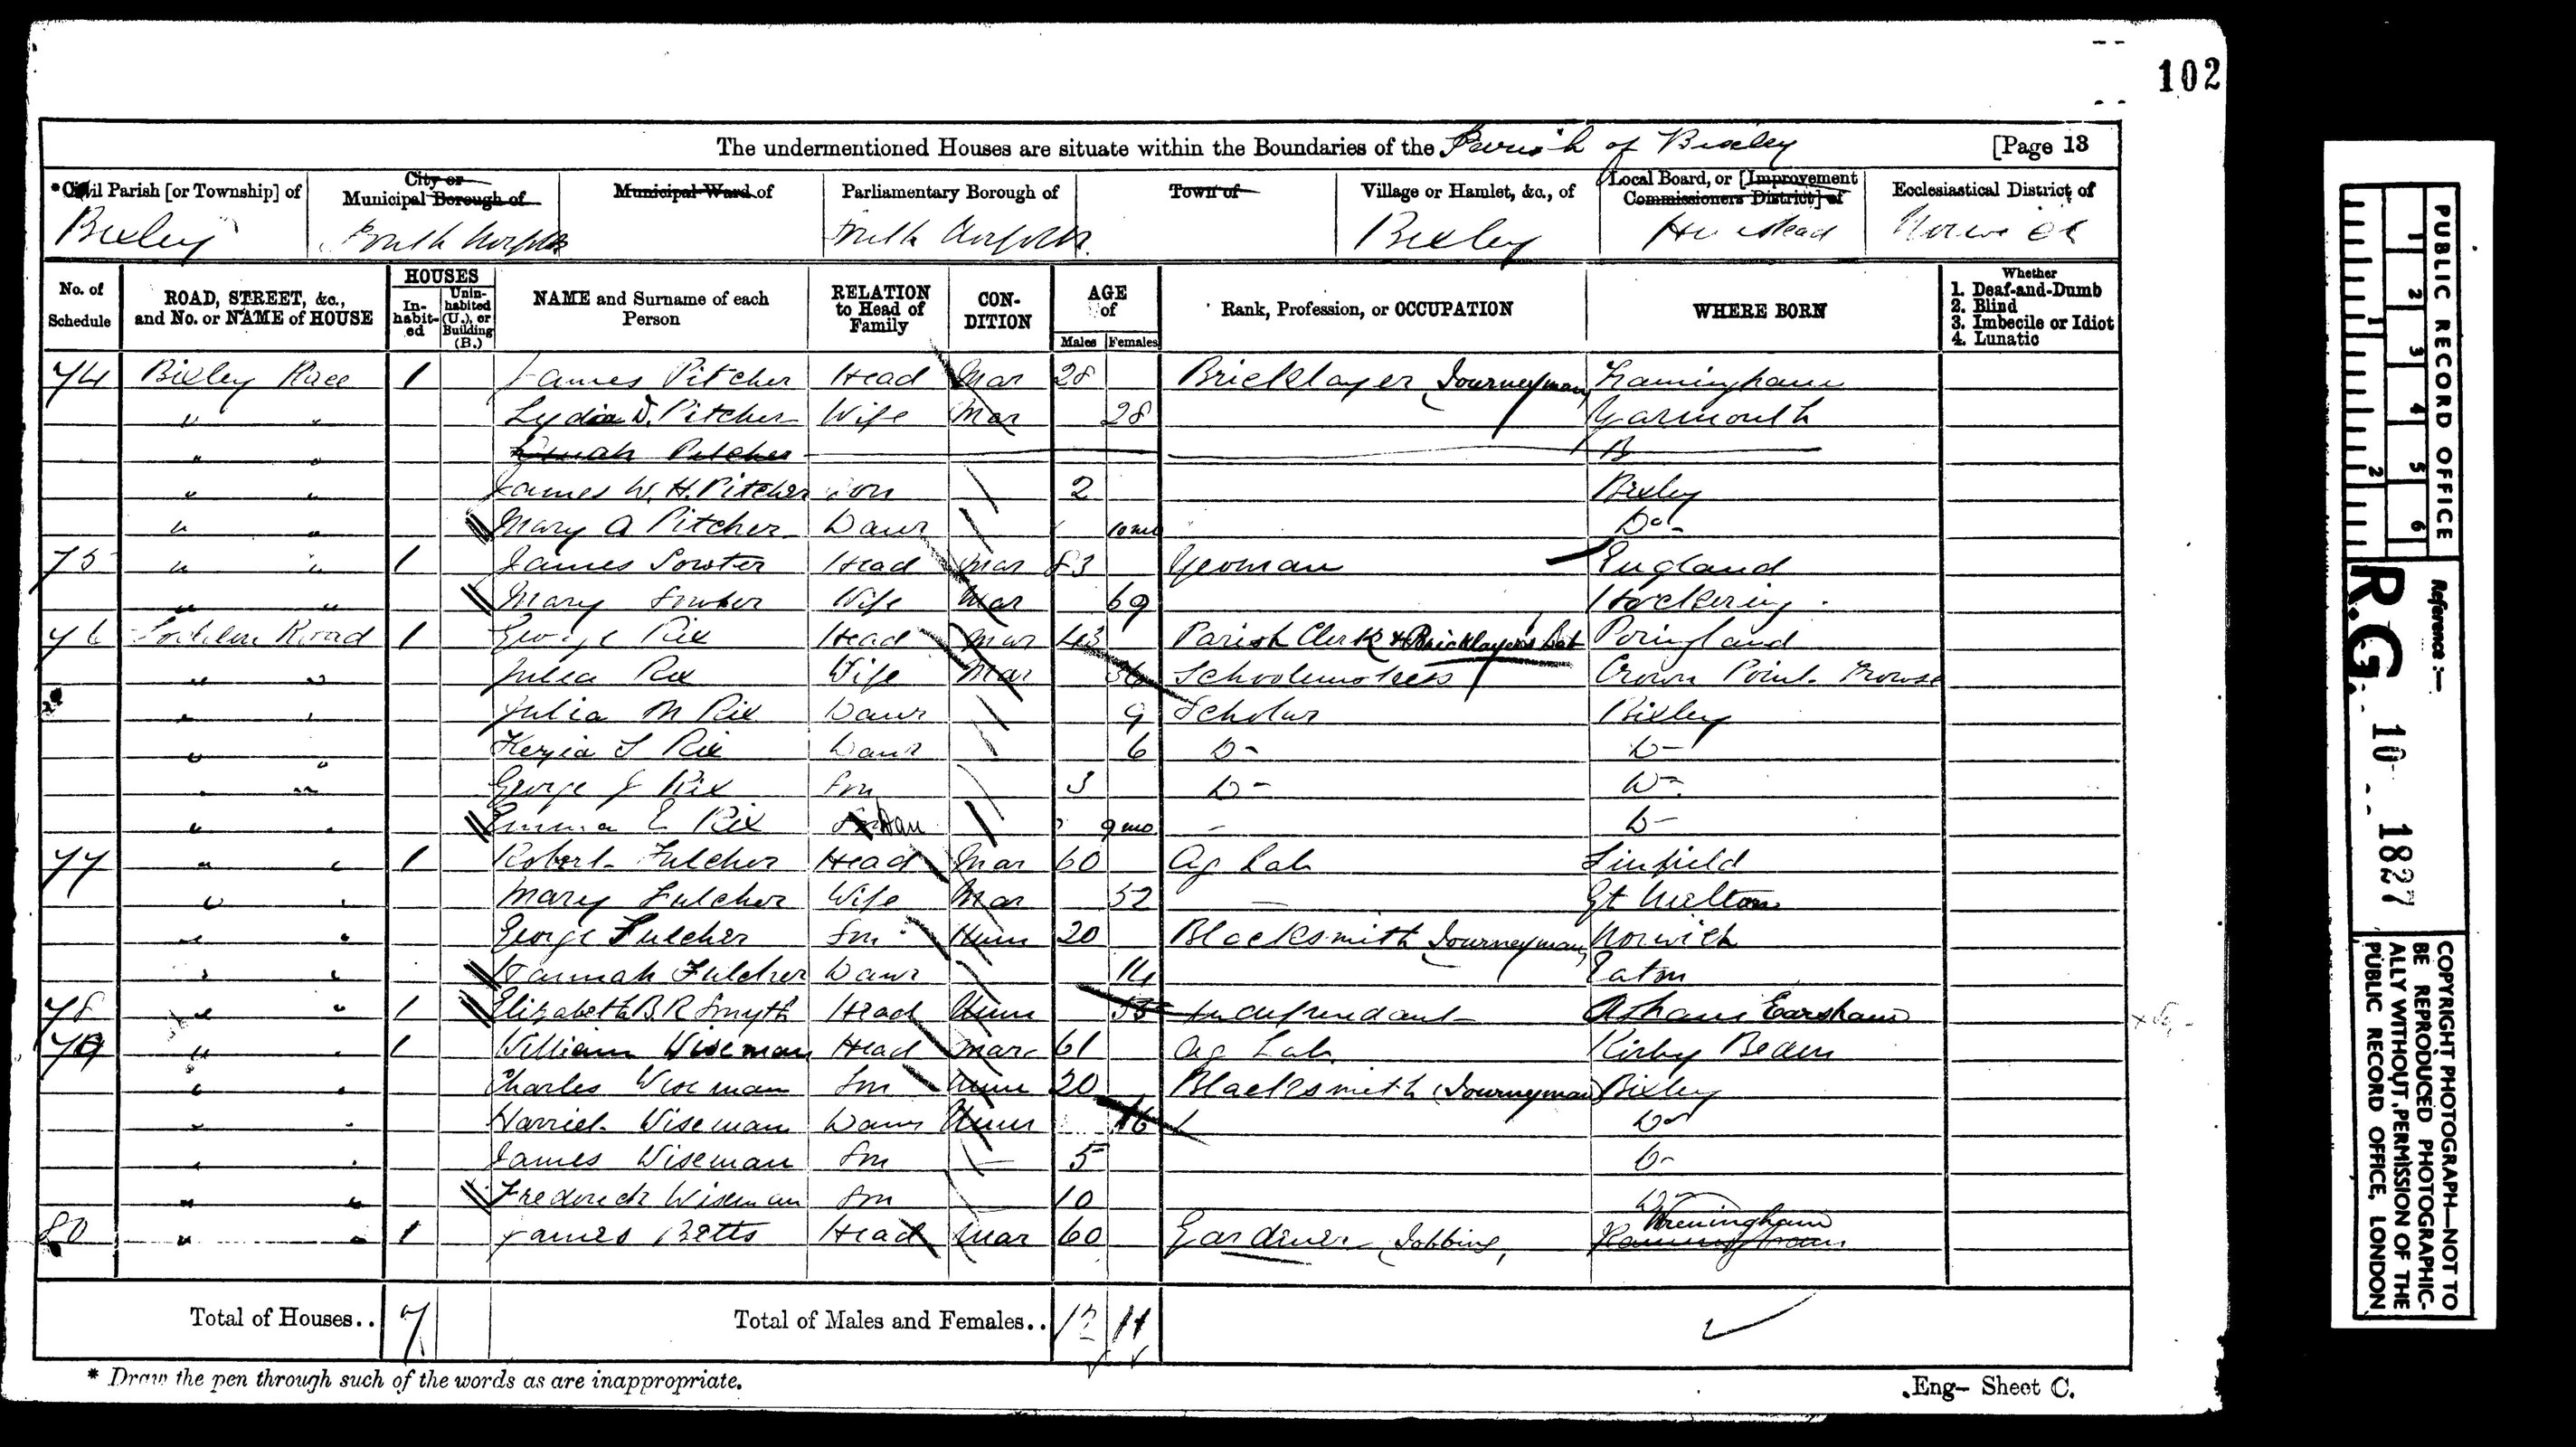 102
The undermentioned Houses are situate within the Boundaries of the Parish of Bixley [Page 13
*Civil Parish [or Township] of Bixley
City or Municipal Borough of South Norfolk
Municipal Ward of
Parliamentary Borough of South Norfolk
Town of
Village or Hamlet, &c., of Bixley
Local Board, or [Improvement Commissioners District] of Henstead
Ecclesiastical District of Norwich
No. of Schedule
ROAD, STREET, &c., and No. or NAME of HOUSE
HOUSES
In-habit-ed
Unin-habited (U.), or Building (B.)
NAME and Surname of each Person
RELATION to Head of Family
CON-DITION
AGE of
Males Females
Rank, Profession, or OCCUPATION
WHERE BORN
Whether
1. Deaf-and-Dumb
2. Blind
3. Imbecile or Idiot
4. Lunatic
74 Bixley 1 James Pitcher Head Mar 28 Bricklayer Journeyman Framingham
" " Lydia D. Pitcher Wife Mar 28 Yarmouth
" " Pitcher
" " James W. H. Pitcher Son 2 Bixley
" " Mary A Pitcher Daur 10 mo Do
75 " " 1 James Sowter Head Mar 83 Yeoman England
" " Mary Sowter Wife Mar 69 Hockering
76 Road 1 George Rix Head Mar 43 Parish Clerk & Bricklayer's Lab Poringland
" " Julia Rix Wife Mar 36 Schoolmistress Crown Point Trowse
" " Julia M Rix Daur 9 Scholar Bixley
" " Kezia S Rix Daur 6 Do Do
" " George J Rix Son 3 Do Do
" " Emma E Rix Dau 9 mo - Do
77 " " 1 Robert Fulcher Head Mar 60 Ag Lab Linfield
" " Mary Fulcher Wife Mar 52 Gt Melton
" " George Fulcher Son Unm 20 Blacksmith Journeyman Norwich
" " Hannah Fulcher Daur 14 Eaton
78 " " 1 Elizabeth B R Smyth Head Unm 55 Independant Earsham
79 " " 1 William Wiseman Head Mar 61 Ag Lab Kirby Bedon
" " Charles Wiseman Son Unm 20 Blacksmith (Journeyman) Bixley
" " Harriet Wiseman Daur Unm 16 Do
" " James Wiseman Son 5 Do
" " Frederick Wiseman Son 10 Do
80 " " 1 James Betts Head Mar 60 Gardiner Jobbing Wreningham
Total of Houses.. 7
Total of Males and Females.. 12 11
* Draw the pen through such of the words as are inappropriate.
Eng- Sheet C.
PUBLIC RECORD OFFICE
1 2 3 4 5 6
1 2
Reference :-
R.G. 10 1827
COPYRIGHT PHOTOGRAPH—NOT TO
BE REPRODUCED PHOTOGRAPHIC-
ALLY WITHOUT PERMISSION OF THE
PUBLIC RECORD OFFICE, LONDON